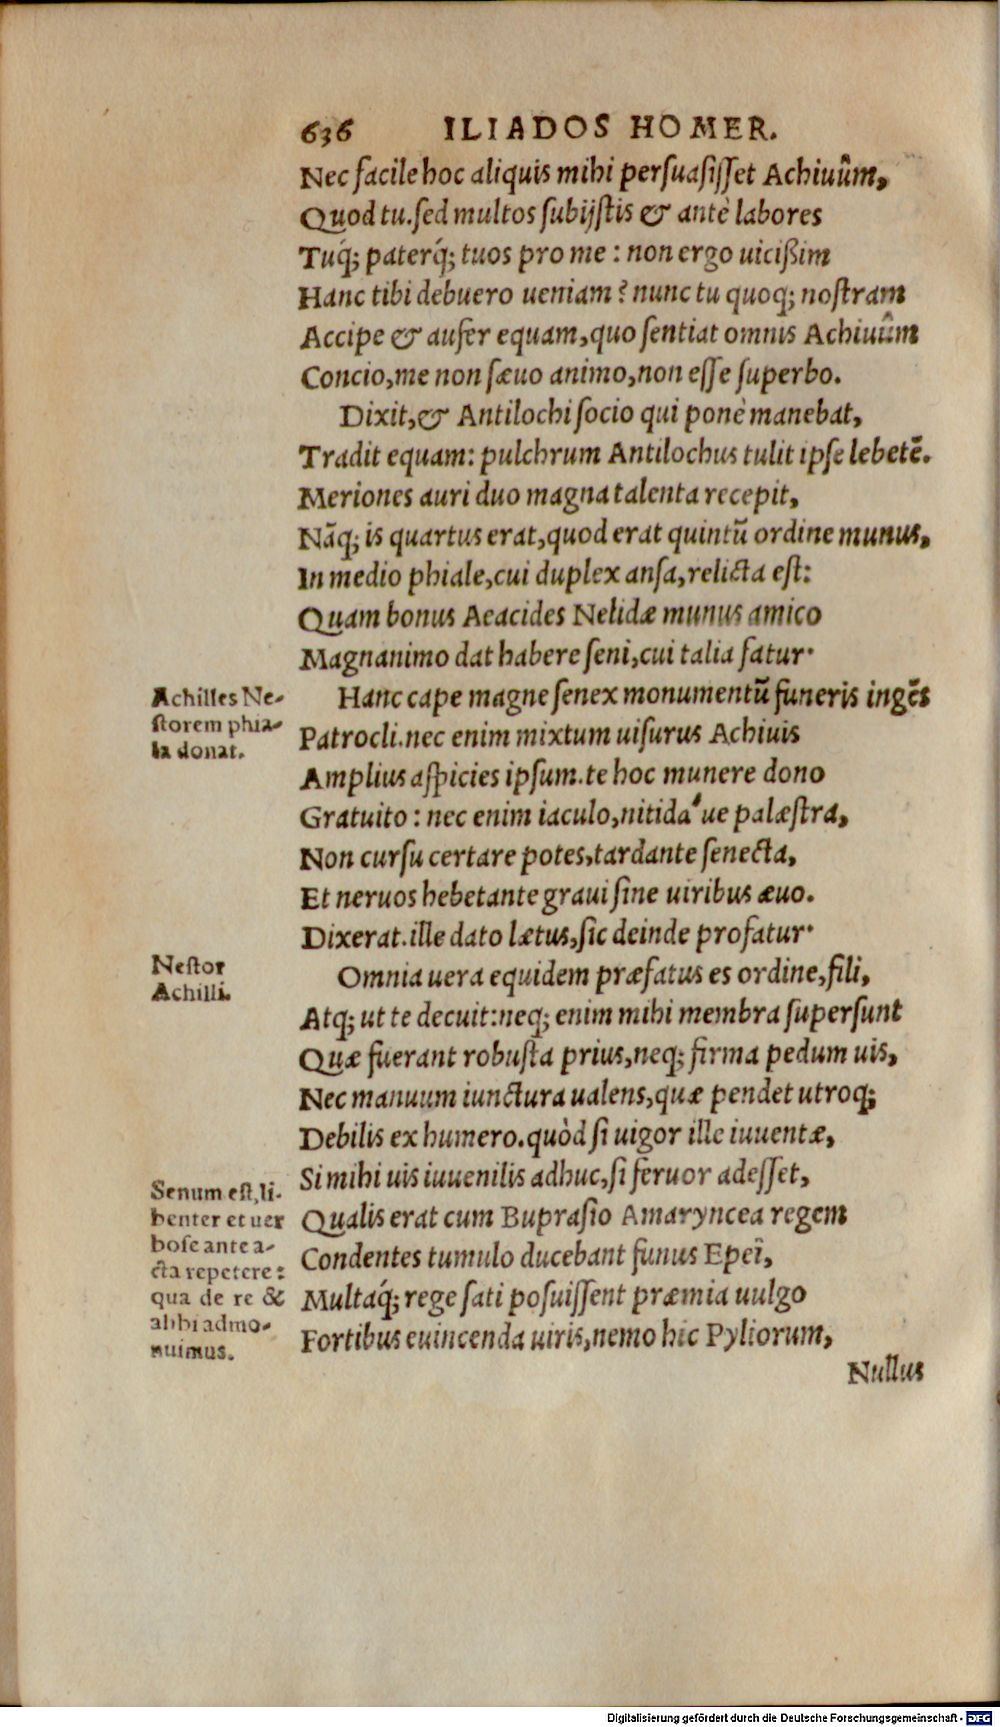 636 ILIADOS HOMER.
Nec facile hoc aliquis mihi persuasisset Achiuûm,
Quod tu. sed multos subijstis & antè labores
Tuq́; paterq́; tuos pro me : non ergo uicißim
Hanc tibi debuero ueniam? nunc tu quoq; nostram
Accipe & aufer equam, quo sentiat omnis Achiuûm
Concio, me non sæuo animo, non esse superbo.
Dixit, & Antilochi socio qui ponè manebat,
Tradit equam: pulchrum Antilochus tulit ipse lebetē.
Meriones auri duo magna talenta recepit,
Nāq; is quartus erat, quod erat quintū ordine munus,
In medio phiale, cui duplex ansa, relicta est:
Quam bonus Aeacides Nelidæ munus amico
Magnanimo dat habere seni, cui talia fatur·
Achilles Ne-
storem phia-
la donat.
Hanc cape magne senex monumentū funeris ingēs
Patrocli. nec enim mixtum uisurus Achiuis
Amplius aspicies ipsum. te hoc munere dono
Gratuito : nec enim iaculo, nitida'ue palæstra,
Non cursu certare potes, tardante senecta,
Et neruos hebetante graui sine uiribus æuo.
Dixerat. ille dato lætus, sic deinde profatur·
Nestor
Achilli.
Omnia uera equidem præfatus es ordine, fili,
Atq; ut te decuit: neq; enim mihi membra supersunt
Quæ fuerant robusta prius, neq; firma pedum uis,
Nec manuum iunctura ualens, quæ pendet utroq;
Debilis ex humero. quòd si uigor ille iuuentæ,
Si mihi uis iuuenilis adhuc, si feruor adesset,
Qualis erat cum Buprasio Amaryncea regem
Condentes tumulo ducebant funus Epeî,
Multaq́; rege sati posuissent præmia uulgo
Fortibus euincenda uiris, nemo hic Pyliorum,
Senum est, li-
benter et uer
bose ante a-
cta repetere:
qua de re &
alibi admo-
nuimus.
Nullus
Digitalisierung gefördert durch die Deutsche Forschungsgemeinschaft - DFG